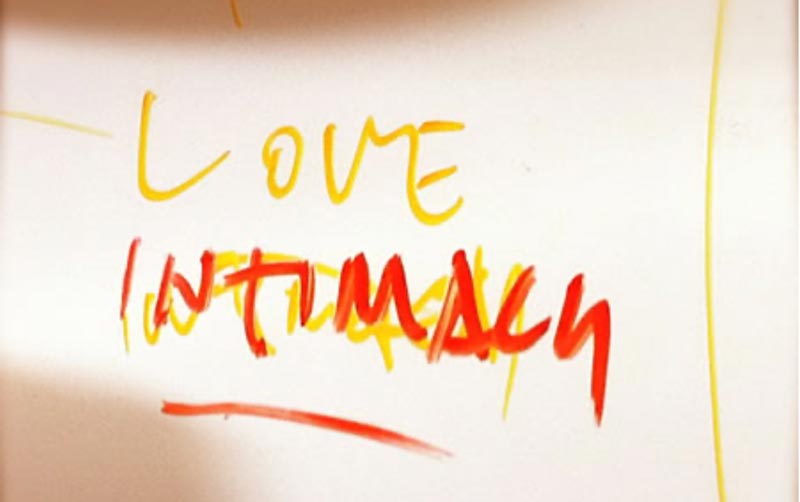 LOVE
INTIMACY